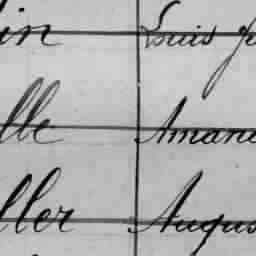 in Louis
lle Aman
ller Augus